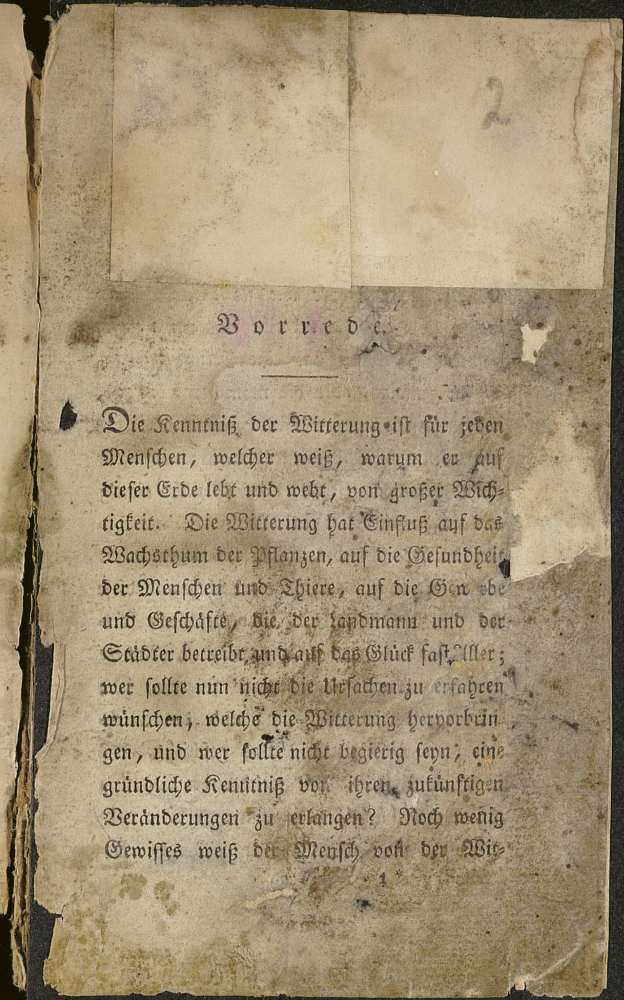 2
Vorrede.
Die Kenntniß der Witterung ist für jeden
Menschen, welcher weiß, warum er auf
dieser Erde lebt und webt, von großer Wich-
tigkeit. Die Witterung hat Einfluß auf das
Wachsthum der Pflanzen, auf die Gesundheit
der Menschen und Thiere, auf die
und Geschäfte, die der Landmann und der
Städter betreibt, und auf das Glück fast Aller;
wer sollte nun nicht die Ursachen zu erfahren
wünschen, welche die Witterung hervorbrin
gen, und wer sollte nicht begierig seyn, eine
gründliche Kenntniß von ihren zukünftigen
Veränderungen zu erlangen? Noch wenig
Gewisses weiß der Mensch von der Wit-
1